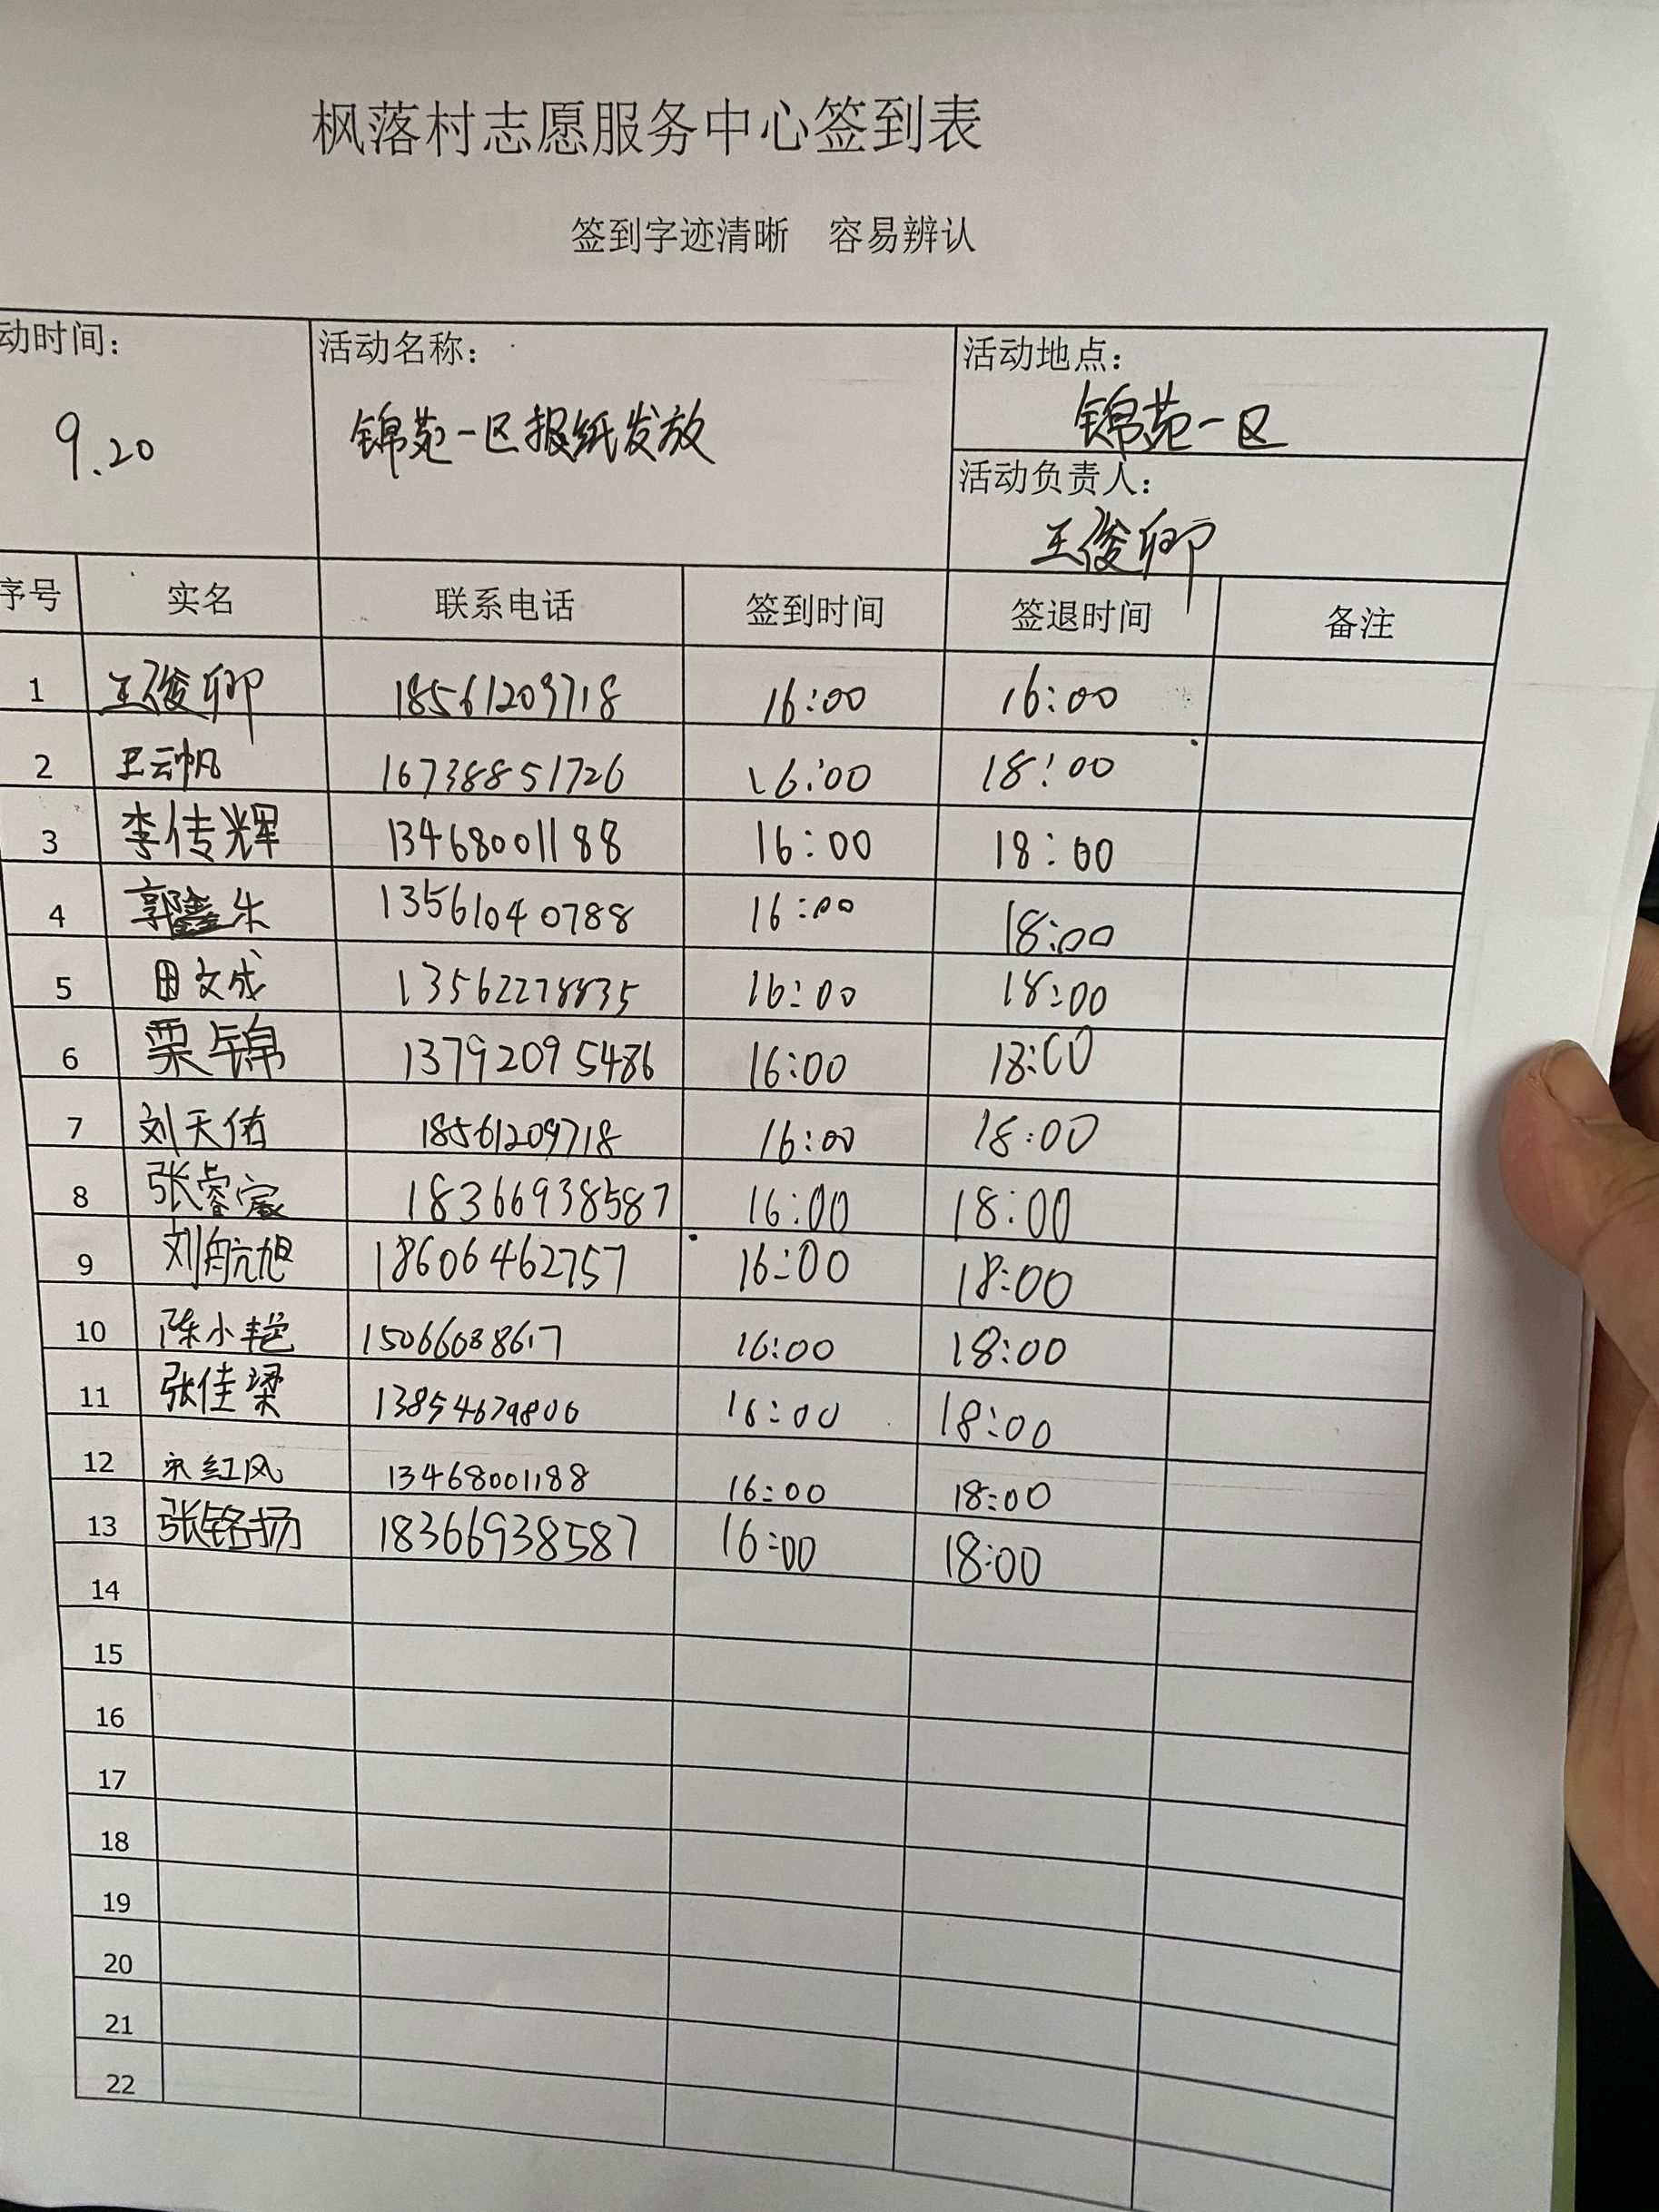 枫落村志愿服务中心签到表
签到字迹清晰 容易辨认
动时间： 活动名称： 活动地点：
9.20 锦苑一区报纸发放 锦苑一区
活动负责人：
王俊卿
序号 实名 联系电话 签到时间 签退时间 备注
1 王俊卿 18561209718 16:00 16:00
2 王云帆 16738851726 16:00 18:00
3 李传辉 13468001188 16:00 18:00
4 郭鑫 13561040788 16:00 18:00
5 田文成 13562278835 16:00 18:00
6 栗锦 13792095486 16:00 18:00
7 刘天佑 18561209718 16:00 18:00
8 张睿宸 18366938587 16:00 18:00
9 刘航旭 18606462757 16:00 18:00
10 陈小艳 15066088617 16:00 18:00
11 张佳梁 13854679800 16:00 18:00
12 宋红风 13468001188 16:00 18:00
13 张铭扬 18366938587 16:00 18:00
14
15
16
17
18
19
20
21
22